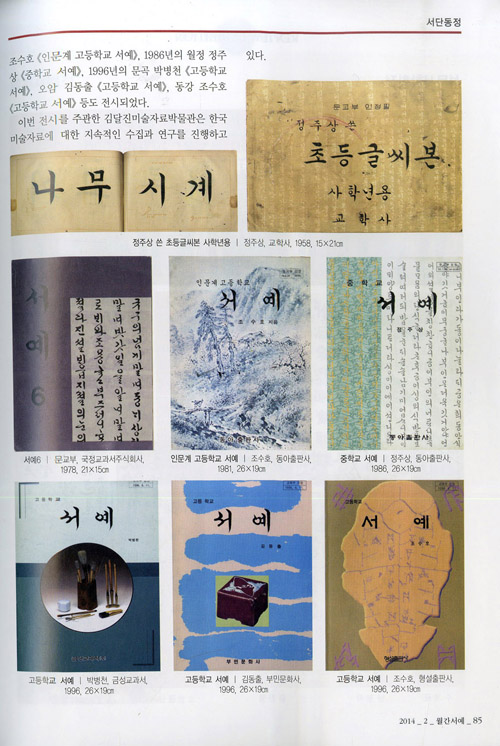 서단동정
조수호 《인문계 고등학교 서예》, 1986년의 월정 정주
상 《중학교 서예》, 1996년의 문곡 박병천 《고등학교
서예》, 오암 김동출 《고등학교 서예》, 동강 조수호
《고등학교 서예》 등도 전시되었다.
이번 전시를 주관한 김달진미술자료박물관은 한국
미술자료에 대한 지속적인 수집과 연구를 진행하고
있다.
나무 시계
문교부 인정필
정주상 쓴
초등글씨본
사학년용
교학사
정주상 쓴 초등글씨본 사학년용 | 정주상, 교학사, 1958, 15×21㎝
서예6
인문계 고등학교
서예
조수호 지음
동아출판사
중학교
서예
정주상
동아출판사
서예6 | 문교부, 국정교과서주식회사,
1978, 21×15㎝
인문계 고등학교 서예 | 조수호, 동아출판사,
1981, 26×19㎝
중학교 서예 | 정주상, 동아출판사,
1986, 26×19㎝
고등학교
서예
박병천
고등 학교
서예
김동출
부민문화사
고등학교
서예
조수호
형설출판사
고등학교 서예 | 박병천, 금성교과서,
1996, 26×19㎝
고등학교 서예 | 김동출, 부민문화사,
1996, 26×19㎝
고등학교 서예 | 조수호, 형설출판사,
1996, 26×19㎝
2014 _ 2 _ 월간서예 _ 85